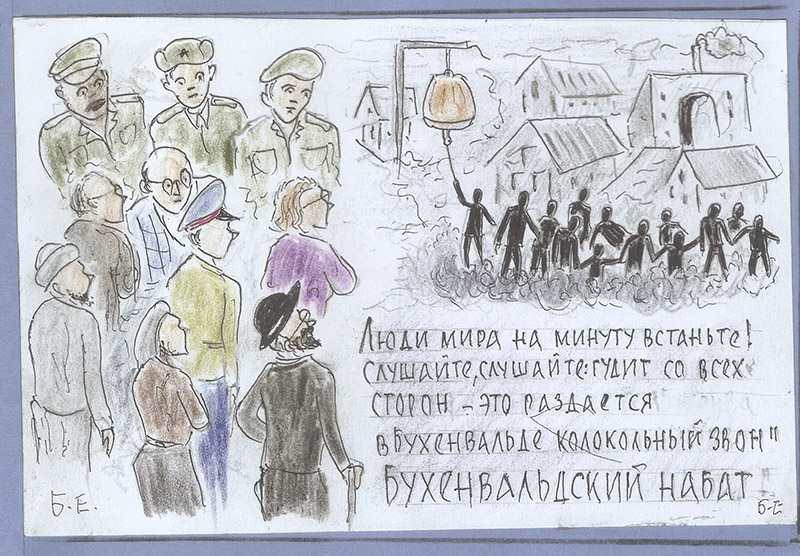 Люди мира на минуту встаньте!
Слушайте, слушайте: гудит со всех
сторон – это раздаётся
в Бухенвальде колокольный звон"
Бухенвальдский набат
Б.Е.
Б-Е